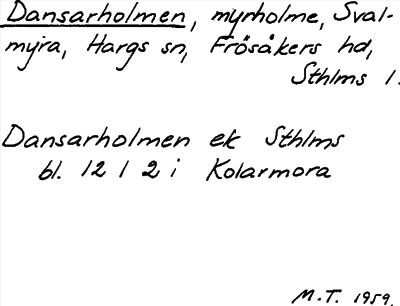 Dansarholmen, myrholme, Sval-
myra, Hargs sn, Frösåkers hd,
Sthlms l.
Dansarholmen ek Sthlms
bl. 12 1 2 i Kolarmora
M.T. 1959.